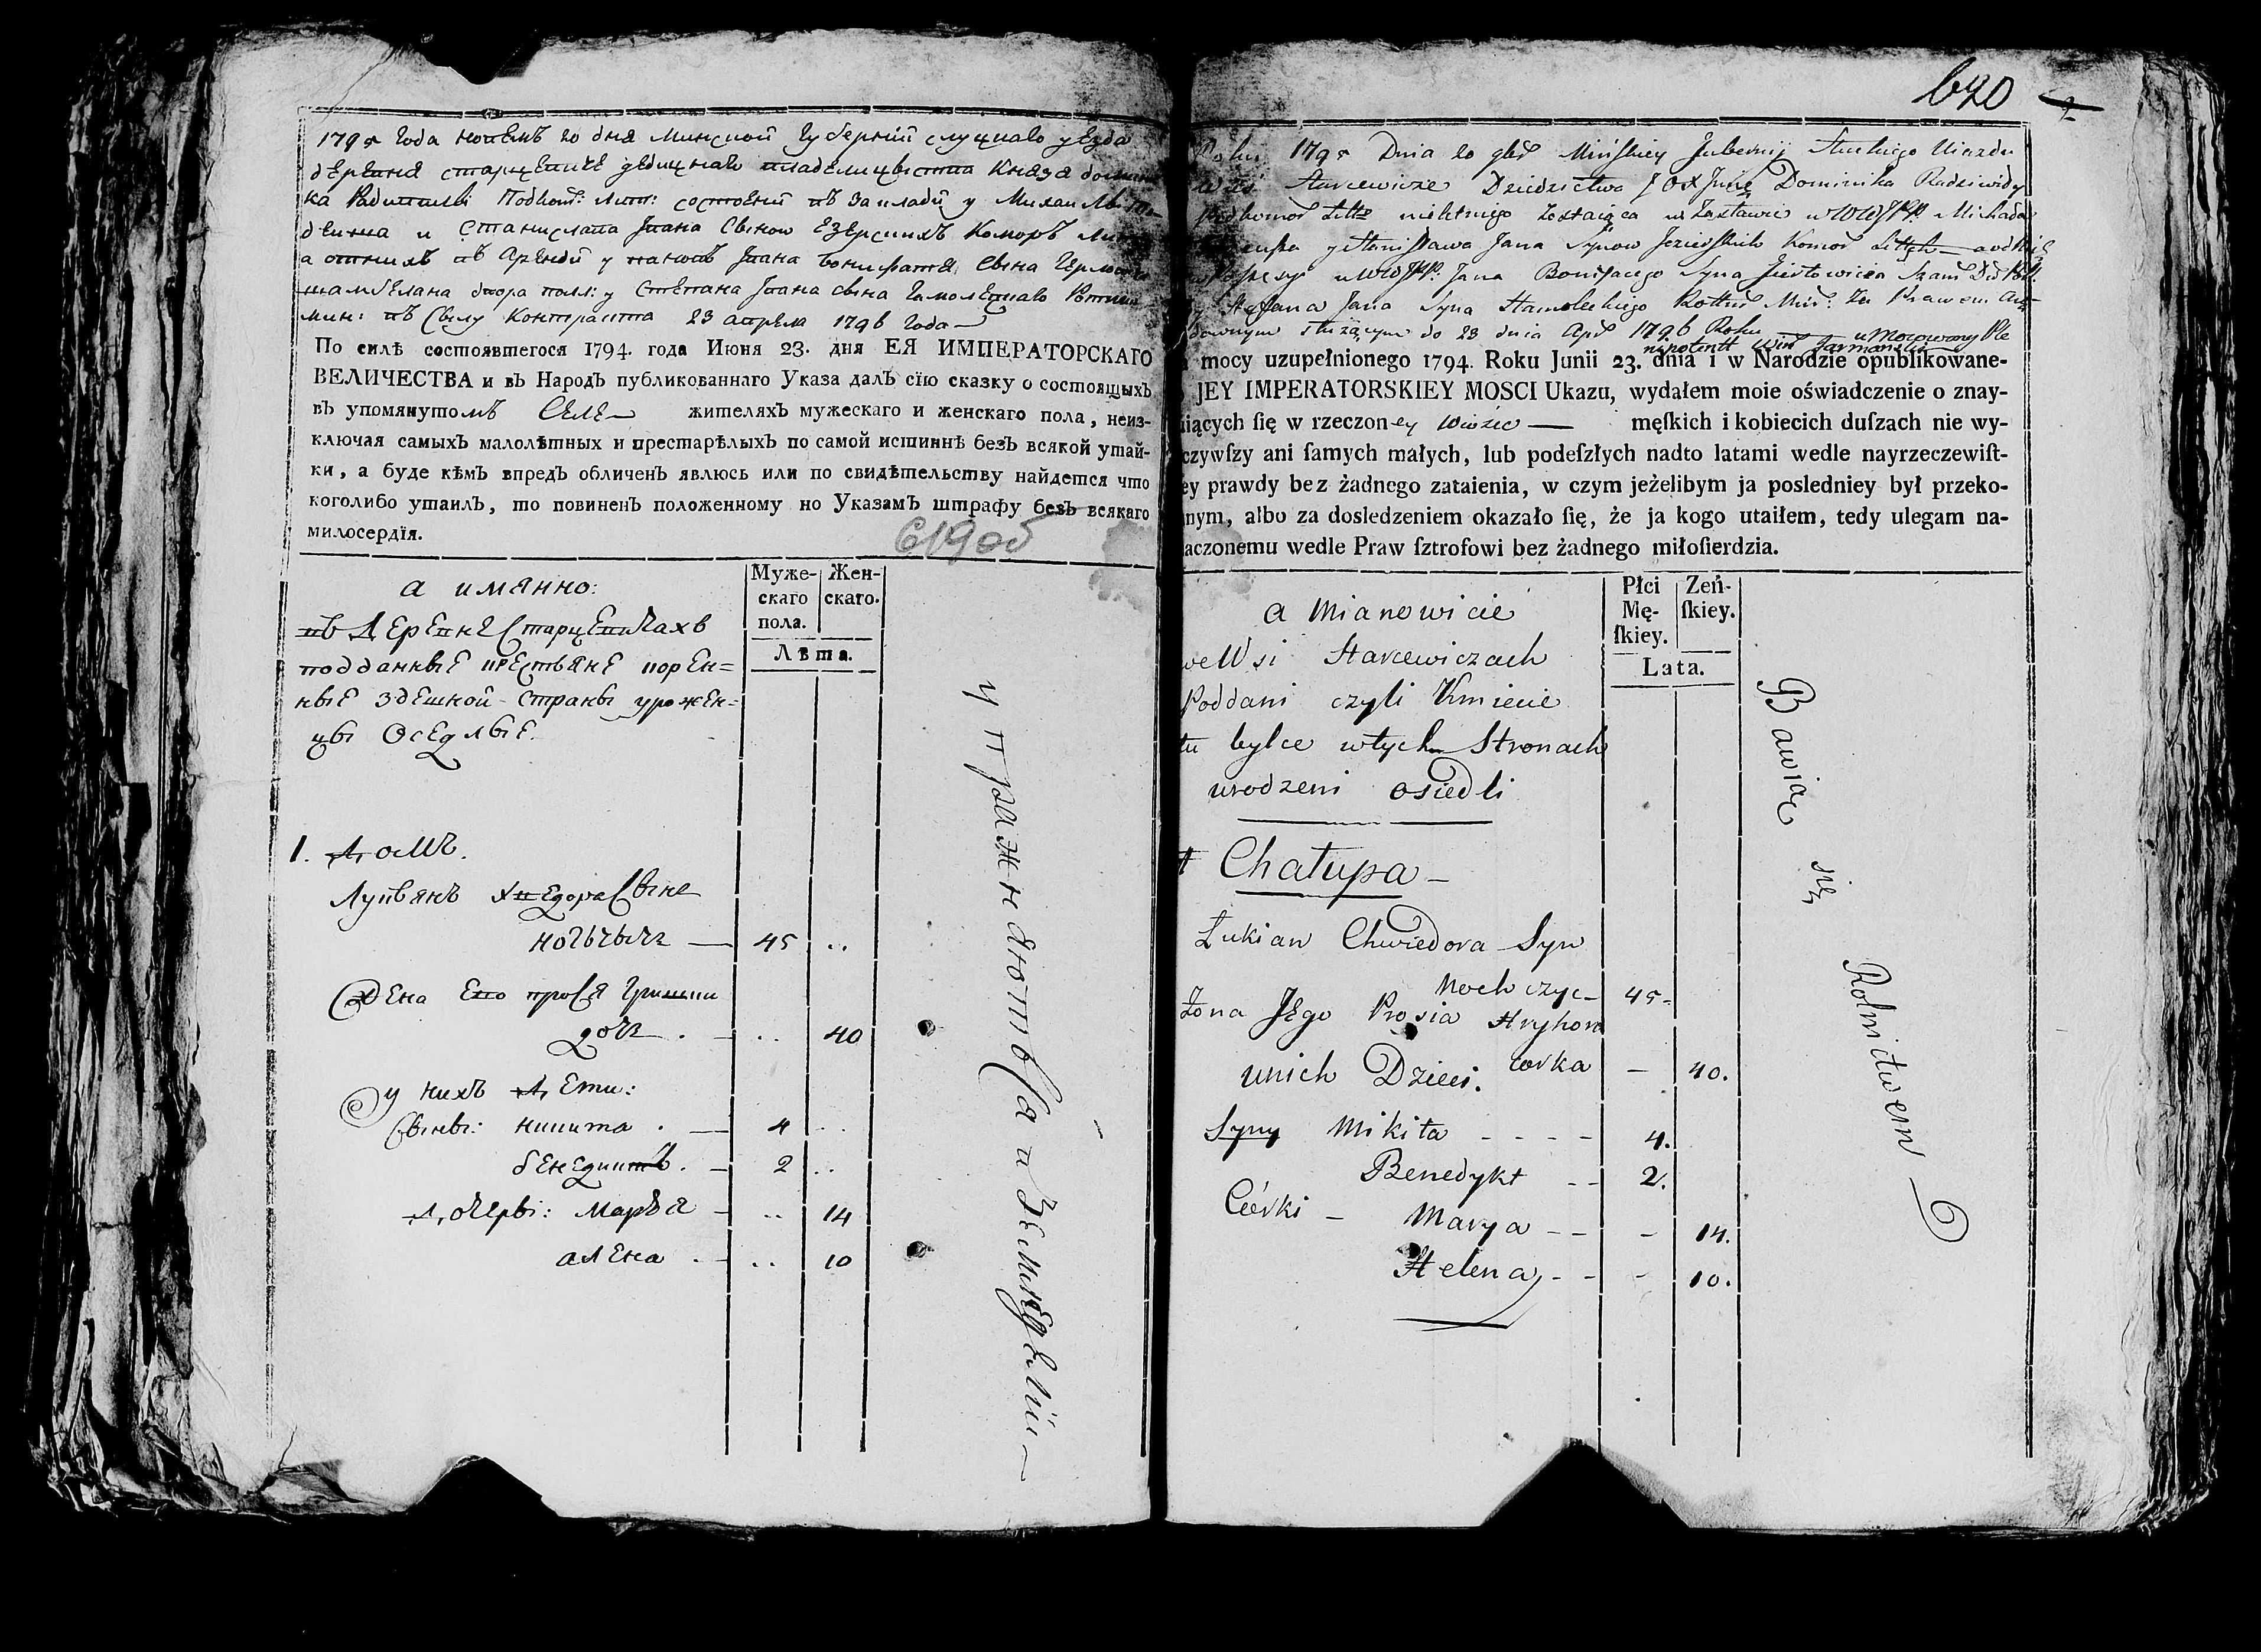 1795 года ноемъ 20 дня Минской губернии слуцкаго уезда
деревня старцевиче дедицнаго владелицвства Князя доми
ка Радивилы Подком: Лит: состоеий въ закладй у Михаила
и Станислава Ивана Свнов Езерскихъ Коморъ
а отнихъ въ Арендй у пановъ Ивана Бонифатея свна
шамбелана двора полл: у Степана Ивана свна Гамолецкаго Ротми
мин: въ Силу Контракта 23 апреля 1796 года
По силѣ состоявшегося 1794. года Июня 23. дня ЕЯ ИМПЕРАТОРСКАГО
ВЕЛИЧЕСТВА и въ Народъ публикованнаго Указа далъ сїю сказку о состоящыхъ
въ упомянутомъ Селе жителяхъ мужескаго и женскаго пола, неиз-
ключая самыхъ малолѣтныхъ и престарѣлыхъ по самой истиннѣ безъ всякой утай-
ки, а буде кѣмъ впредъ обличенъ явлюсь или по свидѣтельству найдется что
коголибо утаилъ, то повиненъ положенному по Указамъ штрафу безъ всякаго
милосердїя.
619об
а имянно:
Муже-скаго пола. Жен-скаго.
Лѣта.
въ Деревнѣ Старцевичахъ
подданные крестьяне корен=
ные здешной страны урожен=
цы Оседлые.
1. Домъ.
Лукьянъ Хведора Сынъ
ночьчычъ — 45 ..
Жена Ево прося Гришки
дочъ . — .. 40
у нихъ Дети:
Сыны: никита . — 4 ..
бенедиктъ . — 2 ..
Дочеры: Марья — .. 14
алена . — .. 10
упражняются в земледелии
620
Roku 1795 Dnia 20 9br Mińskiey Gubernij Słuckiego Uiazdu
Starcewicze Dziedzictwa JOX Dominika Radziwiły
Podkomor Litto nieletniego zostaiąca w Zastawie u WWJPP Michała
y Stanisława Jana Synow Jezierskich Komor
u WWJPP: Jana Bonifacego Syna
y Stefana Jana Syna Hamoleckiego Rottm Min: za Prawem are-
downym służącym do 23 dnia Apr 1796 Roku umocowany Ple
nipotentt
mocy uzupełnionego 1794. Roku Junii 23. dnia i w Narodzie opublikowane-
JEY IMPERATORSKIEY MOSCI Ukazu, wydałem moie oświadczenie o znay-
iących ſię w rzeczoney Wiosce — męſkich i kobiecich duſzach nie wy-
czywſzy ani ſamych małych, lub podeſzłych nadto latami wedle nayrzeczewiſt-
ey prawdy bez żadnego zataienia, w czym jeżelibym ja posledniey był przeko-
nym, albo za dosledzeniem okazało ſię, że ja kogo utaiłem, tedy ulegam na-
aczonemu wedle Praw ſztrofowi bez żadnego miłoſierdzia.
a Mianowicie
Płci Mę-ſkiey. Zeń-ſkiey.
Lata.
we Wsi Starcewiczach
Poddani czyli Kmiecie
tu bylce w tych Stronach
urodzeni osiedli
1 Chałupa —
Łukian Chwiedora Syn
Nochczyc — 45 -
Żona Jego Prosia Hryhora
corka — 40.
u nich Dzieci.
Syny Mikita - - - - 4.
Benedykt - - 2.
Córki — Marya - - - 14.
Helena - - - 10.
Bawiąc się Rolnictwem